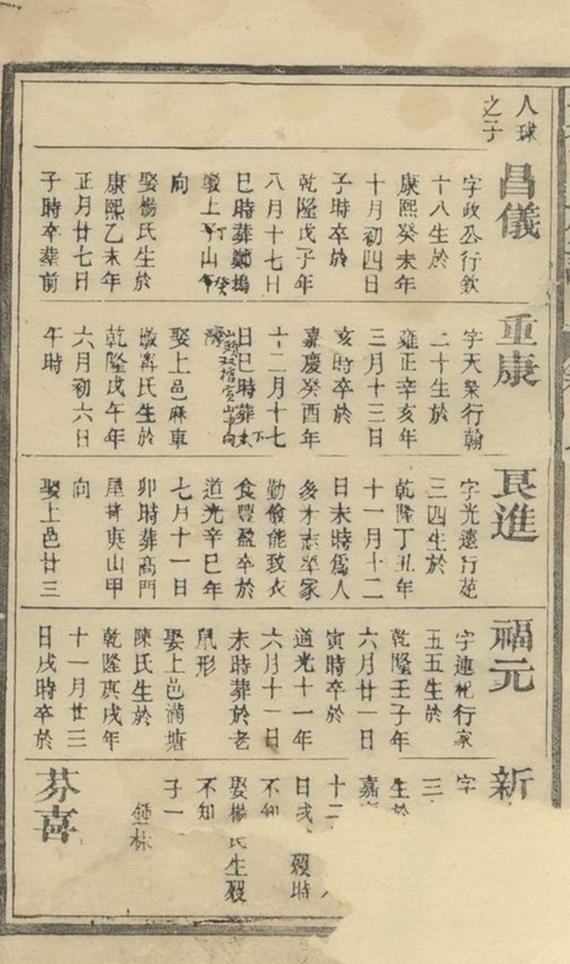 人球
之子
昌儀
字政公行欽
十八生於
康熙癸未年
十月初四日
子時卒於
乾隆戊子年
八月十七日
巳時葬鄭塢
上山
向
娶楊氏生於
康熙乙未年
正月廿七日
子時卒葬前
重康
字天榮行翰
二十生於
雍正辛亥年
三月十三日
亥時卒於
嘉慶癸酉年
十二月十七
日巳時葬
娶上邑麻車
氏生於
乾隆戊午年
六月初六日
午時
良進
字光遠行苑
三四生於
乾隆丁丑年
十一月十二
日未時爲人
多才志平家
勤儉能致衣
食豐盈卒於
道光辛巳年
七月十一日
卯時葬高門
尾塘庚山甲
向
娶上邑廿三
福元
字連杞行家
五五生於
乾隆壬子年
六月廿一日
寅時卒於
道光十一年
六月十一日
未時葬於老
鼠形
娶上邑滿塘
陳氏生於
乾隆庚戌年
十一月廿三
日戌時卒於
新
字
三
生於
嘉
十二
日或 殁時
不知
娶楊氏生殁
不知
子一
鍾林
芬喜